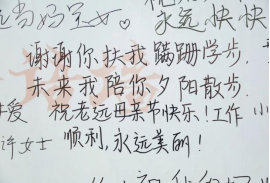 当妈宝女。
永远快快
谢谢你扶我蹒跚学步，
未来我陪你夕阳散步。
爱 祝老远母亲节快乐！工作 小
许女士 顺利，永远美丽！